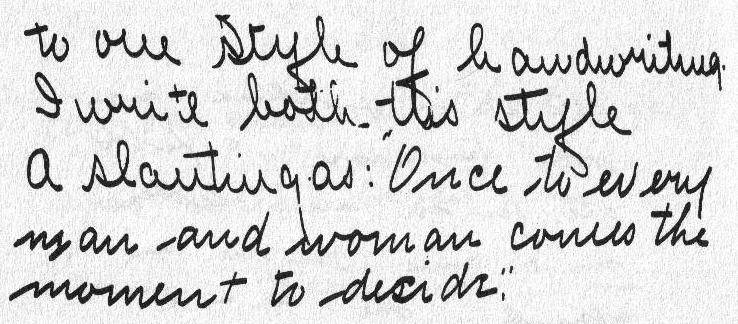 to one style of handwriting.
I write both this style
A slanting as: "Once to every
man and woman comes the
moment to decide".